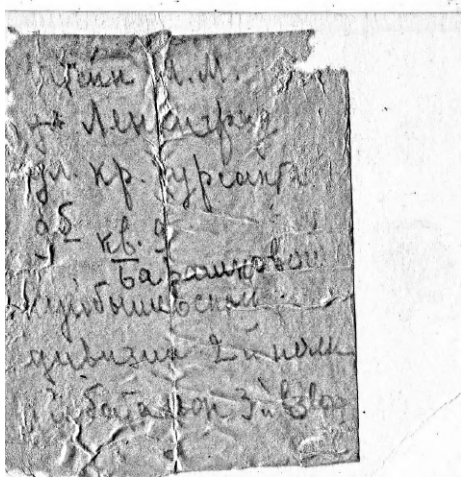 А.М.
Ленинград
ул. кр. курсанта
кв. 9
Барашковой
куйбышевской
дивизии 2й полк
батальон 3й взвод